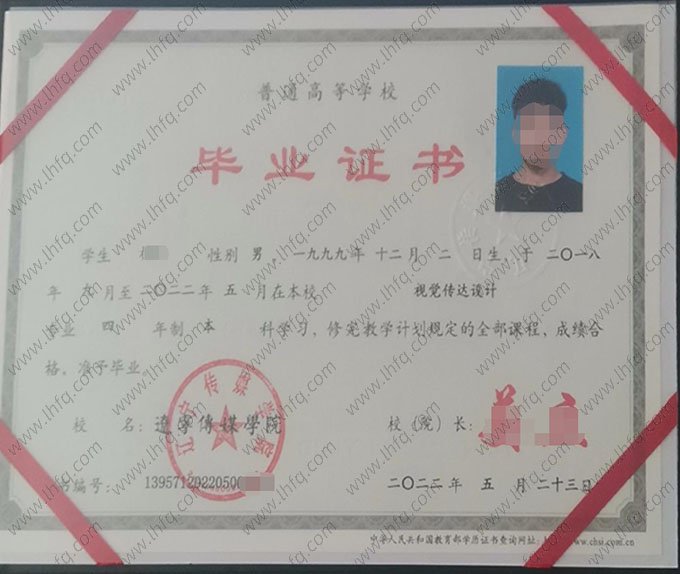 普通高等学校
毕业证书
学生 性别 男，一九九九年 十二月 二 日生，于 二〇一八
年 九 月至 二〇二二年 五 月在本校 视觉传达设计
专业 四 年制 本 科学习，修完教学计划规定的全部课程，成绩合
格，准予毕业。
校 名：遼寧傳媒學院 校（院）长：
辽宁传媒学院
证书编号：13957120220500
二〇二二年 五 月 二十三日
中华人民共和国教育部学历证书查询网址：http://www.chsi.com.cn
www.lhfq.com